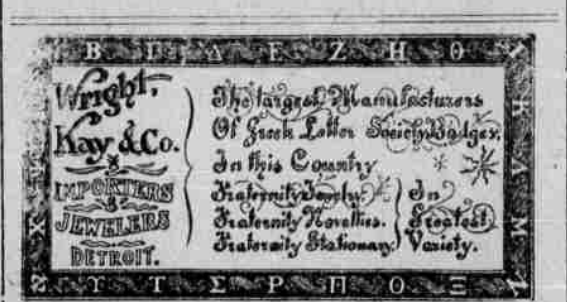 Β Γ Δ Ε Ζ Η Θ Ι
Wright,
Kay & Co.
IMPORTERS
&
JEWELERS
DETROIT.
The largest Manufacturers
Of Greek Letter Society Badges,
In this Country
Fraternity Jewelry.
Fraternity Novelties.
Fraternity Stationary.
In
Greatest
Variety.
Κ
Μ
Χ
Υ Τ Σ Ρ Π Ο Ξ Ν